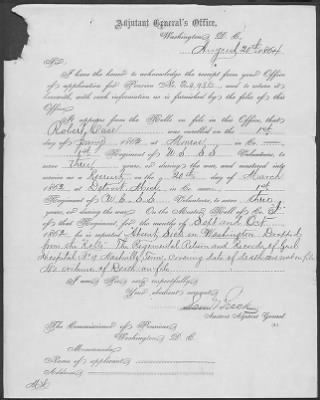 Adjutant General's Office,
Washington, D. C.,
August 20th, 1864.
Sir:
I have the honor to acknowledge the receipt from your Office
of application for Pension No.
and to return it
herewith, with such information as is furnished by the files of this
Office.
It appears from the Rolls on file in this Office, that
Robert was enrolled on the 1st
day of 1862, at Monroe in Co.
1st Regiment of U S S S Volunteers, to serve
three years, or during the war, and mustered into
service as a Recruit on the 20th day of March
1862, at Detroit, Mich in Co. 1st
Regiment of U S S S Volunteers, to serve three
years, or during the war. On the Muster Roll of Co.
of that Regiment, for the months of Sept and Oct
1862, he is reported "Absent, Sick in Washington. Dropped
from the Rolls." The Regimental Return and Records of Genl
Hospital No 19 Nashville, Tenn, covering date of death are not on file
No evidence of Death on file
I am, Sir, very respectfully,
Your obedient servant,
Saml Breck
Assistant Adjutant General.
The Commissioner of Pensions,
Washington, D. C.
Memoranda:
Name of applicant
Address